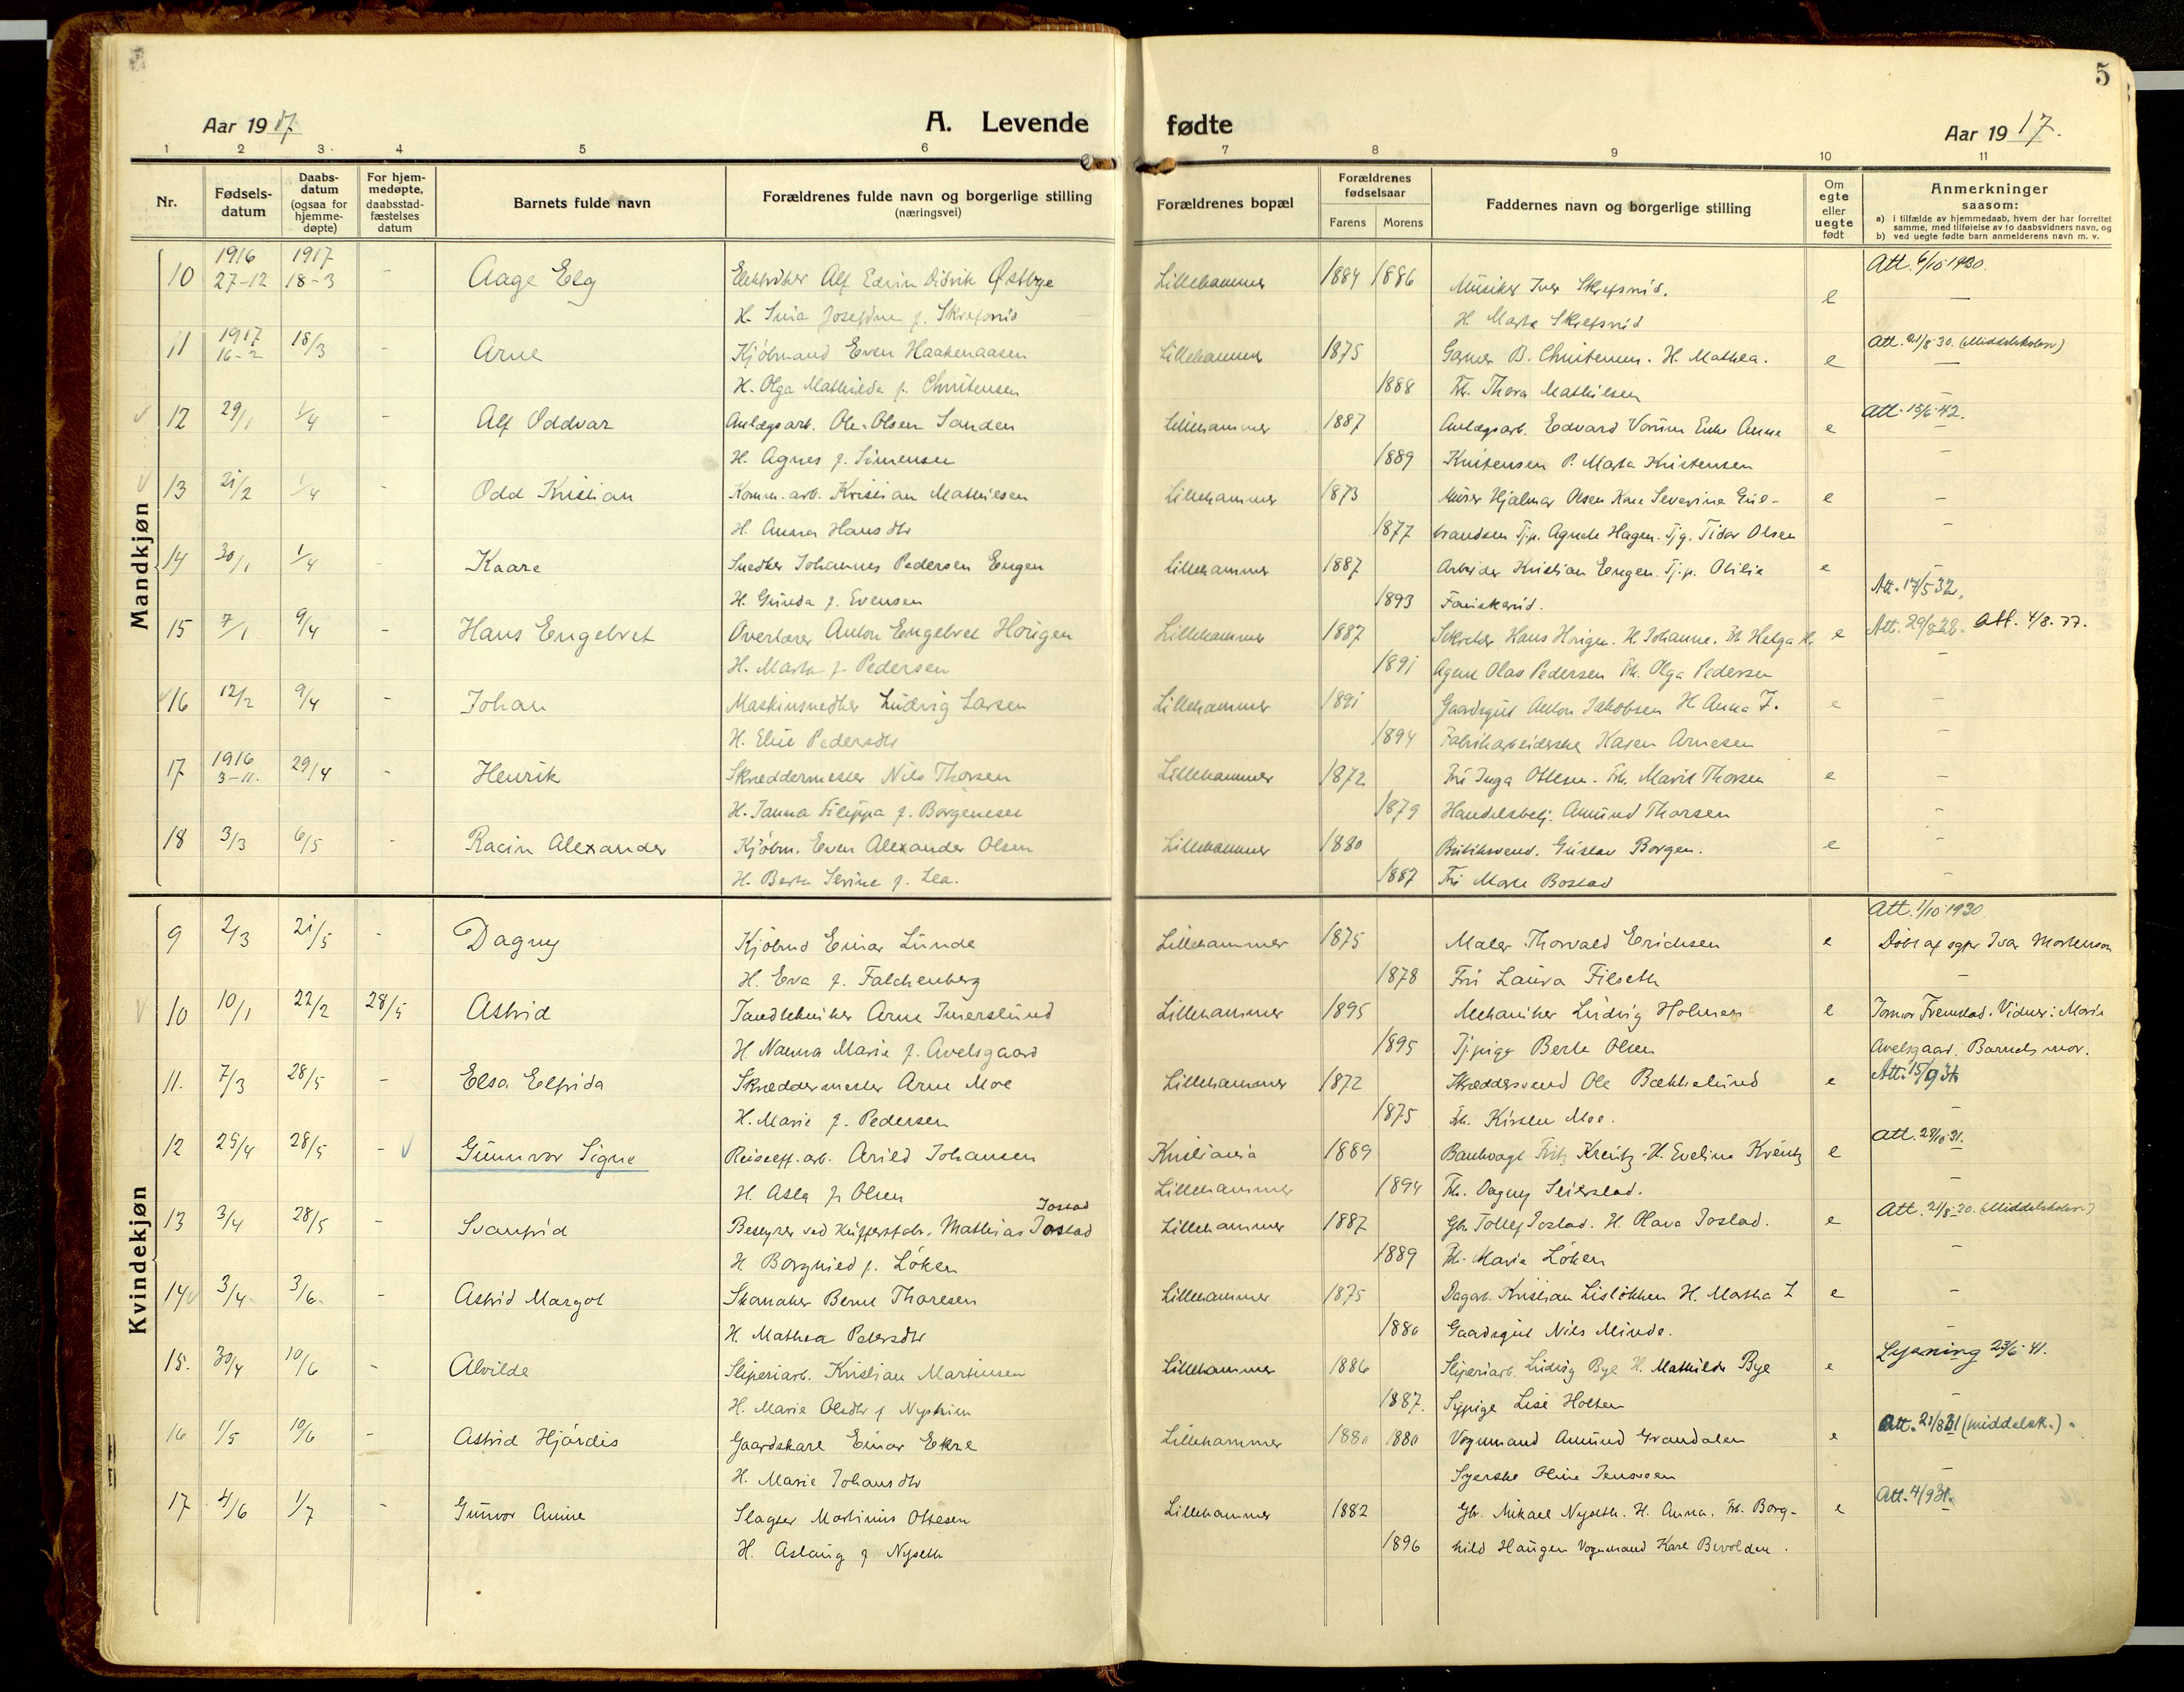 5
Aar 1917
A. Levende
fødte
Aar 1917.
1 2 3 4 5 6 7 8 9 10 11
Nr.
Fødsels-datum
Daabs-datum (ogsaa for hjemme-døpte)
For hjem-medøpte, daabsstad-fæstelses datum
Barnets fulde navn
Forældrenes fulde navn og borgerlige stilling (næringsvei)
Forældrenes bopæl
Forældrenes fødselsaar
Farens Morens
Faddernes navn og borgerlige stilling
Om egte eller uegte født
Anmerkninger saasom:
a) i tilfælde av hjemmedaab, hvem der har forrettet samme, med tilføielse av to daabsvidners navn, og
b) ved uegte fødte barn anmelderens navn m. v.
Mandkjøn
1916 1917 Att. 6/10 1930.
10 27-12 18-3 - Aage Elg Elektriker Alf Edvin Didrik Østbye Lillehammer 1884 1886 Musiker Iver Skrefsrud. e -
H. Josefine f. Skrefsrud H. Marta Skrefsrud
11 1917 16-2 18/3 - Arne Kjøbmand Even Haakenaasen Lillehammer 1875 Garver B. Christensen. H. Mathea. e Att. 21/8 30. (Middelskolen) -
H. Olga Mathilda f. Christensen 1888 Frk. Thora Mathilesen -
12 29/1 1/4 - Alf Oddvar Anlægsarb. Ole Olsen Sanden Lillehammer 1887 Anlægsarb. Edvard Enke Anne e Att. 15/6 42. -
H. Agnes f. Simensen 1889 Kristensen P. Marta Kristensen -
13 21/2 1/4 - Odd Kristian Komm. arb. Kristian Mathiesen Lillehammer 1873 Murer Hjalmar Olsen Kone Severine Gul- e -
H. Anna Hansdtr 1877 brandsen Tj.p. Agnete Hagen. Tj.g. Tidar Olsen -
14 30/1 1/4 - Kaare Snedker Johannes Pedersen Engen Lillehammer 1887 Arbeider Kristian Engen. Tj.p. Otilie e -
H. Gunda f. Evensen 1893 Att. 17/5 32.
15 7/1 9/4 - Hans Engebret Overlærer Anton Engebret Horigen Lillehammer 1887 Hans Horigen. H. Johanne. Frk Helga H. e Att. 29/8 28. Att. 4/8. 77.
H. Marta f. Pedersen 1891 Agent Olav Pedersen Frk. Olga Pedersen -
16 12/2 9/4 - Johan Maskinsnedker Ludvig Larsen Lillehammer 1891 Gaardsgut Anton Jakobsen H. Anna J. e -
H. Eline Pedersdtr 1894 Fabrikarbeiderske Karen Arnesen -
17 1916 3-11. 29/4 - Henrik Skræddermester Nils Thorsen Lillehammer 1872 Fru Inga Ottesen. Frk. Marit Thorsen e -
H. Janna Filippa f. Borgensen 1879 Handelsbetj. Amund Thorsen -
18 3/3 6/5 - Racin Alexander Kjøbm. Even Alexander Olsen Lillehammer 1880 Butiksvend. Gustav Borgen. e -
H. Berta Sevine f. Lea. 1887 Fru Marte Bostad -
Kvindekjøn
Att. 1/10 1930
9 2/3 21/5 - Dagny Kjøbmd Einar Lunde Lillehammer 1875 Maler Thorvald Erichsen e Døbt af sgpr Ivar Mortenson
H. Eva f. Falchenberg 1878 Fru Laura Filseth -
10 10/1 22/2 28/5 Astrid Tandtekniker Arne Imerslund Lillehammer 1895 Mekaniker Ludvig Holmen e Jormor Fremstad. Vidner: Marie
H. Nanna Marie f. Avelsgaard 1895 Tj.pige Berte Olsen Avelsgaard. Barnets mor.
11. 7/3 28/5 - Elsa Elfrida Skræddermester Arne Moe Lillehammer 1872 Skræddersvend Ole Bækkelund e Att. 15/9 31
H. Marie f. Pedersen 1875 Frk. Kirsten Moe. -
12 25/4 28/5 - Gunnvor Signe Reiseeff. arb. Arild Johansen Kristiania 1889 Banevogt Fritz Kreutz. H. Eveline Kreutz e Att. 28/10 31. -
H. Asta f. Olsen Lillehammer 1894 Frk. Dagny Seierstad. -
Jostad
13 3/4 28/5 - Svanfrid Bestyrer ved Kuffertfabr. Mathias Jostad Lillehammer 1887 Gbr Tollef Jostad. H. Olava Jostad. e Att. 21/8 30. (Middelskolen)
H Borghild f. Löken 1889 Frk. Marie Löken -
14 3/4 3/6 - Astrid Margot Skomaker Bernt Thoresen Lillehammer 1875 Dagarb. Kristian Lislökken H. Martha L e -
H. Mathea Petersdtr 1880 Gaardsgut Nils Minde. -
15. 30/4 10/6 - Alvilde Sliperiarb. Kristian Martinsen Lillehammer 1886 Sliperiarb. Ludvig Bye H. Mathilde Bye e Lysning 23/6 41.
H. Marie Olsdtr f. 1887. Sypige Lise Holten -
16 1/5 10/6 - Astrid Hjördis Gaardskarl Einar Ekre Lillehammer 1880 1880 Vognmand Amund Grandalen e Att. 21/8 31 (middelsk.)
H. Marie Johansdtr Syerske Oline Jensveen -
17 4/6 1/7 - Gunvor Anne Slagter Martinius Ottesen Lillehammer 1882 Gbr. Mikael Nyseth. H. Anna. Frk. Borg- e Att. 4/9 31. -
H. Aslaug f Nyseth 1896 hild Haugen Vognmand Karl Bevolden.